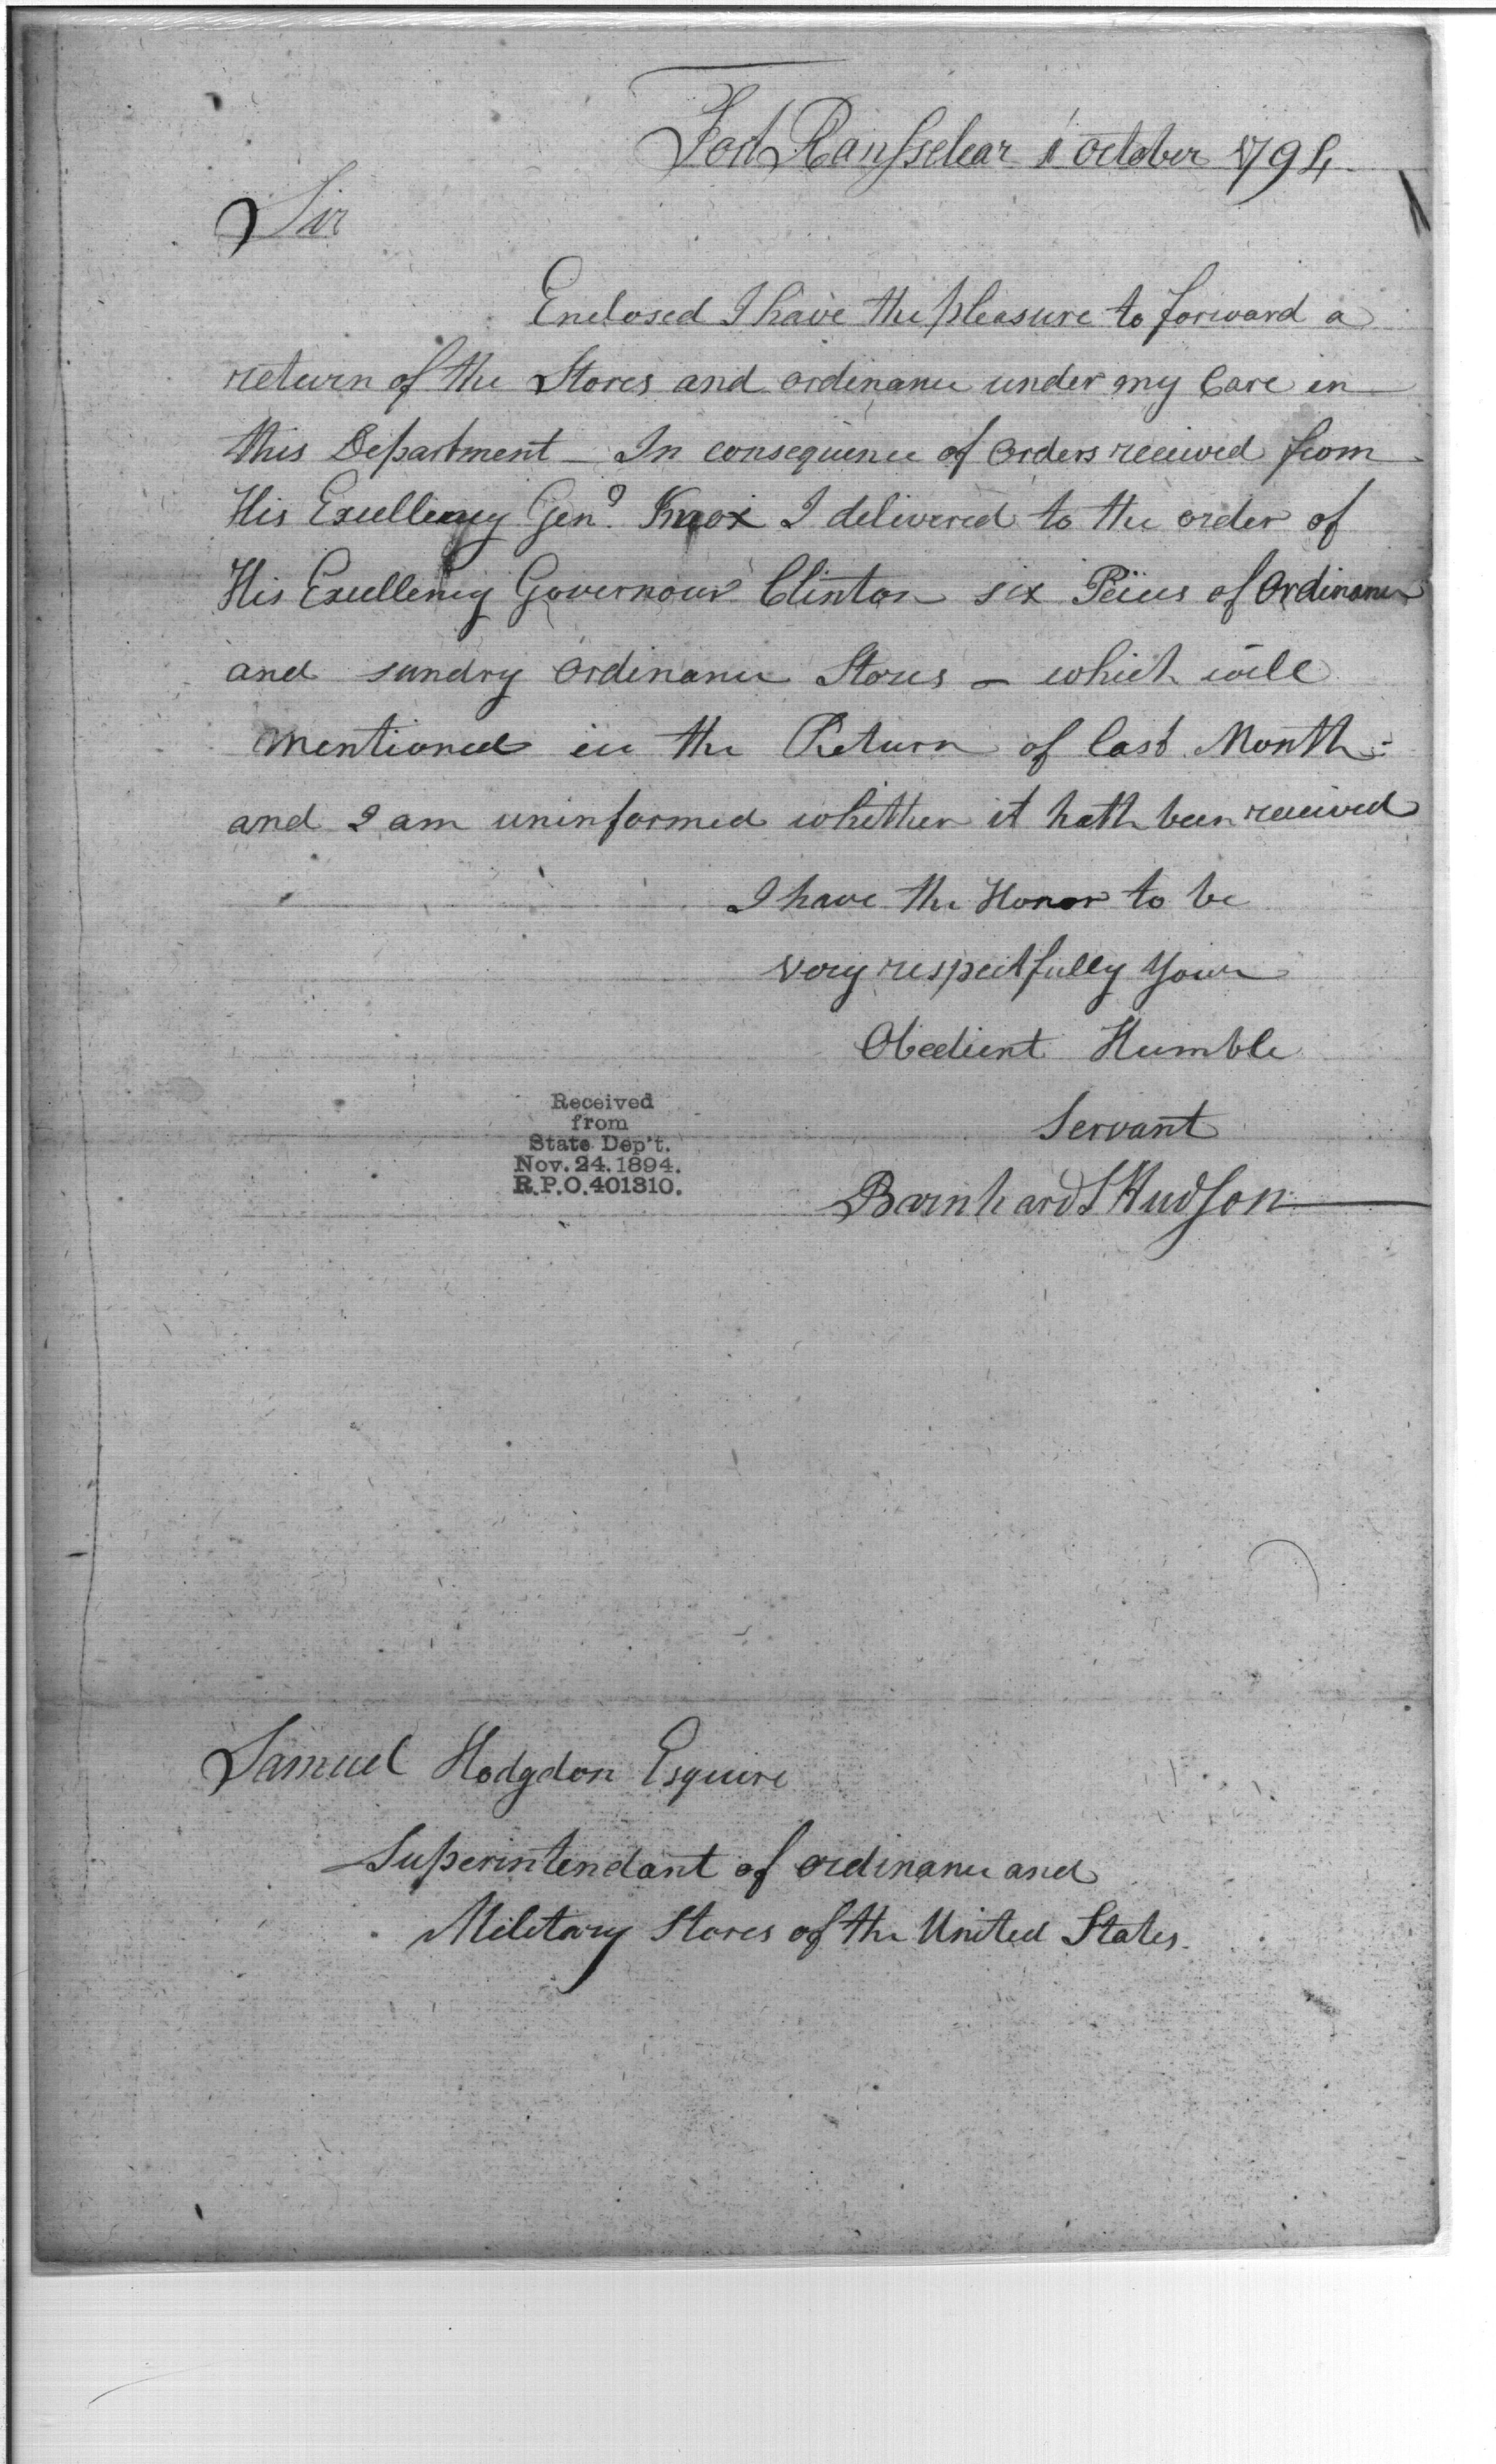 Fort Ransselear 1 October 1794
Sir
Enclosed I have the pleasure to forward a
return of the Stores and ordinance under my Care in
this Department – In consequence of orders received from
His Excellency Genl. Knox I delivered to the order of
His Excellency Governour Clinton six Peices of Ordinance
and sundry ordinance Stores – which will
mentioned in the Return of last Month –
and I am uninformed whether it hath been received
I have the Honor to be
very respectfully Your
Obedient Humble
Servant
Barnhard S Hudson
Received
from
State Dep't.
Nov. 24. 1894.
R.P.O. 401310.
Samuel Hodgdon Esquire
Superintendant of ordinance and
Military Stores of the United States.